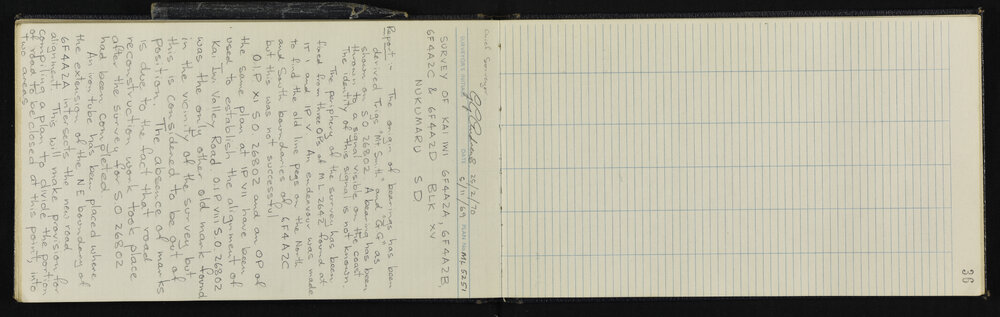 Chief Surveyor
25/2/70
SURVEYOR'S INITIALS DATE 6/11/69 PLAN No. ML 5251
SURVEY OF KAI IWI 6F4A2A, 6F4A2B,
6F4A2C & 6F4A2D BLK XV
NUKUMARU SD
Report :- The origin of bearings has been
derived Trigs "Mt Smith" and "GG" as
shown on S.O 26802. A bearing has been
thrown to a signal visible on the coast
The identity of this signal is not known.
The periphery of the survey has been
fixed from three O.I's of ML 2642 found at
IT I and IP V. An endeavour was made
to find the old line pegs on the North
and South boundaries of 6F4A2C
but this was not successful
O.I.P XI S.O. 26802 and an OP of
the same plan at IP VII have been
used to establish the alignment of
Kai Iwi Valley Road. O.I.P VIII S.O. 26802
was the only other old mark found
in the vicinity of the survey but
this is considered to be out of
position. The absence of marks
is due to the fact that road
reconstruction work took place
after the survey for S.O 26802
had been completed
An iron tube has been placed where
the extension of the NE boundary of
6F4A2A intersects the new road
alignment. This will make provision for
compiling a plan to divide the portion
of road to be closed at this point, into
two areas
36